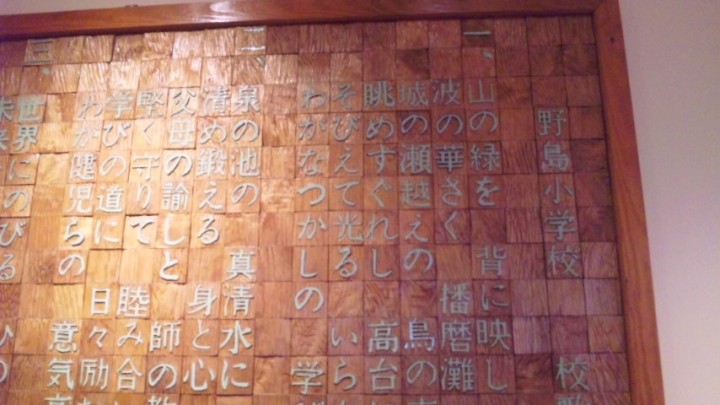 野島小学校 校歌
一、
山の緑を 背に映し
波の華さく 播磨灘
城の瀬越えの 鳥の
眺めすぐれし 高台
そびえて光る いら
わがなつかしの 学
二、
泉の池の 真清水に
清め鍛える 身と心
父母の諭しと 師の教
堅く守りて 睦み合
学びの道に 日々励
わが健児らの 意気高
三、
世界にのびる ひの
未来